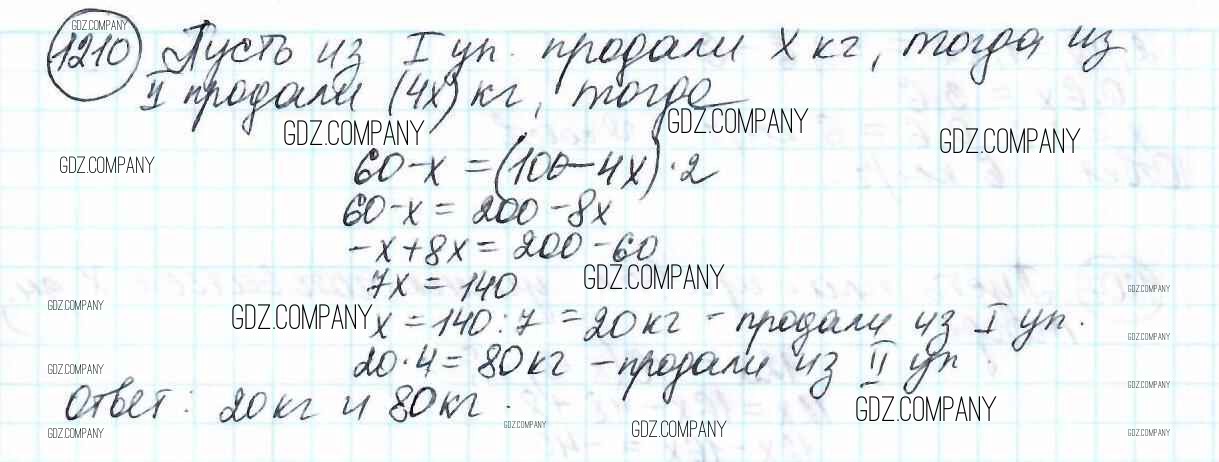 GDZ.COMPANY
1210 Пусть из I уп. продали х кг, тогда из
II продали (4х) кг, тогда
GDZ.COMPANY GDZ.COMPANY GDZ.COMPANY
GDZ.COMPANY
60-х = (100-4х)·2
60-х = 200-8х
-х+8х = 200-60
7х = 140
GDZ.COMPANY
GDZ.COMPANY GDZ.COMPANY
GDZ.COMPANY
х = 140:7 = 20кг - продали из I уп.
GDZ.COMPANY
20·4 = 80кг - продали из II уп
GDZ.COMPANY
GDZ.COMPANY
Ответ: 20кг и 80кг.
GDZ.COMPANY
GDZ.COMPANY GDZ.COMPANY GDZ.COMPANY GDZ.COMPANY